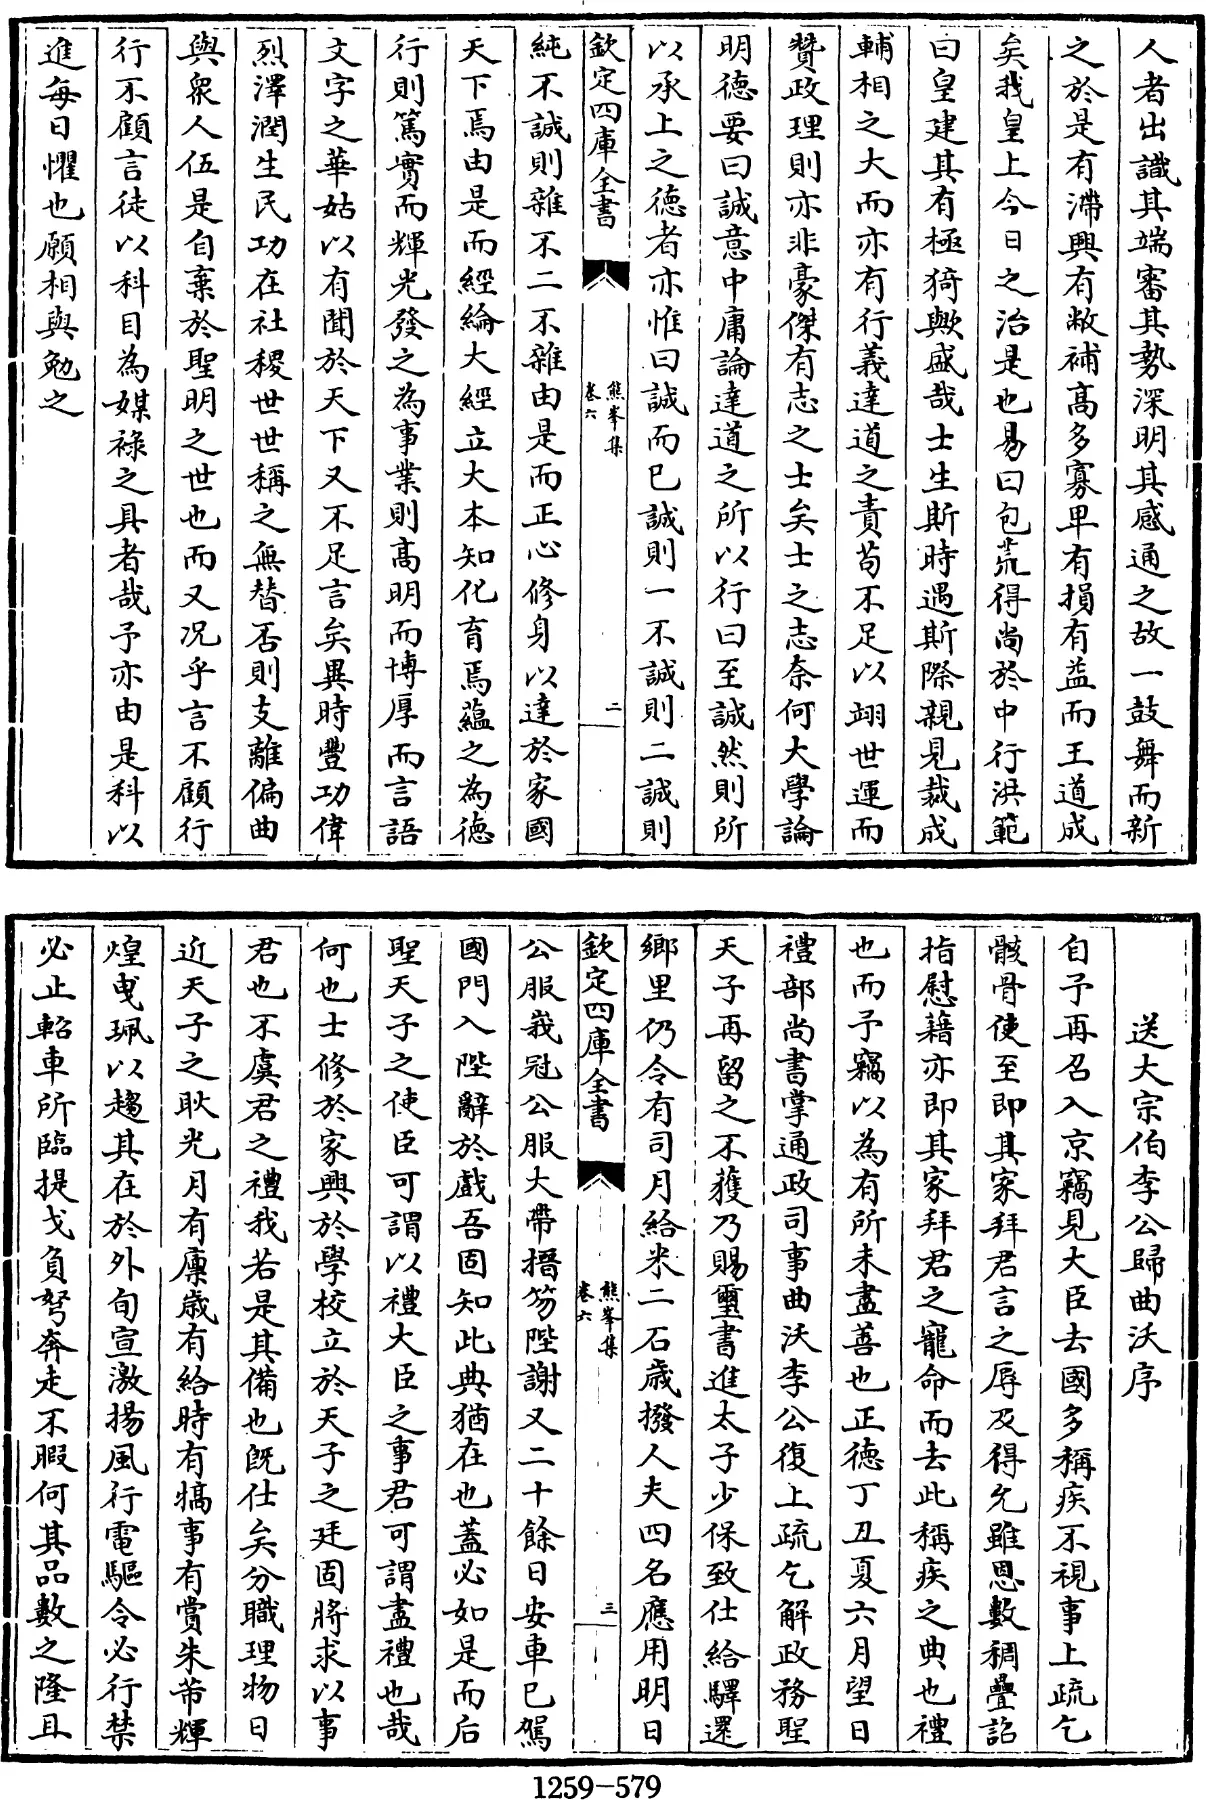 人者出識其端審其勢深明其感通之故一鼓舞而新
之於是有滯興有敝補髙多寡卑有損有益而王道成
矣我皇上今日之治是也易曰包荒得尚於中行洪範
曰皇建其有極猗歟盛哉士生斯時遇斯際親見裁成
輔相之大而亦有行義達道之責苟不足以翊世運而
贊政理則亦非豪傑有志之士矣士之志奈何大學論
明徳要曰誠意中庸論達道之所以行曰至誠然則所
以承上之徳者亦惟曰誠而已誠則一不誠則二誠則
欽定四庫全書
熊峯集
卷六
二
純不誠則雜不二不雜由是而正心修身以達於家國
天下焉由是而經綸大經立大本知化育焉蘊之為徳
行則篤實而輝光發之為事業則高明而博厚而言語
文字之華姑以有聞於天下又不足言矣異時豐功偉
烈澤潤生民功在社稷世世稱之無替否則支離偏曲
與衆人伍是自棄於聖明之世也而又况乎言不顧行
行不顧言徒以科目為媒祿之具者哉予亦由是科以
進每日懼也願相與勉之
送大宗伯李公歸曲沃序
自予再召入京竊見大臣去國多稱疾不視事上疏乞
骸骨使至即其家拜君言之辱及得允雖恩數稠疊詔
指慰藉亦即其家拜君之寵命而去此稱疾之典也禮
也而予竊以為有所未盡善也正徳丁丑夏六月望日
禮部尚書掌通政司事曲沃李公復上疏乞解政務聖
天子再留之不獲乃賜璽書進太子少保致仕給驛還
鄉里仍令有司月給米二石歳撥人夫四名應用明日
欽定四庫全書
熊峯集
卷六
三
公服峩冠公服大帶搢笏陛謝又二十餘日安車已駕
國門入陛辭於戲吾固知此典猶在也蓋必如是而后
聖天子之使臣可謂以禮大臣之事君可謂盡禮也哉
何也士修於家興於學校立於天子之廷固將求以事
君也不虞君之禮我若是其備也既仕矣分職理物日
近天子之耿光月有廪歳有給時有犒事有賞朱芾輝
煌曵珮以趨其在於外旬宣激揚風行電驅令必行禁
必止軺車所臨提戈負弩奔走不暇何其品數之隆且
1259-579